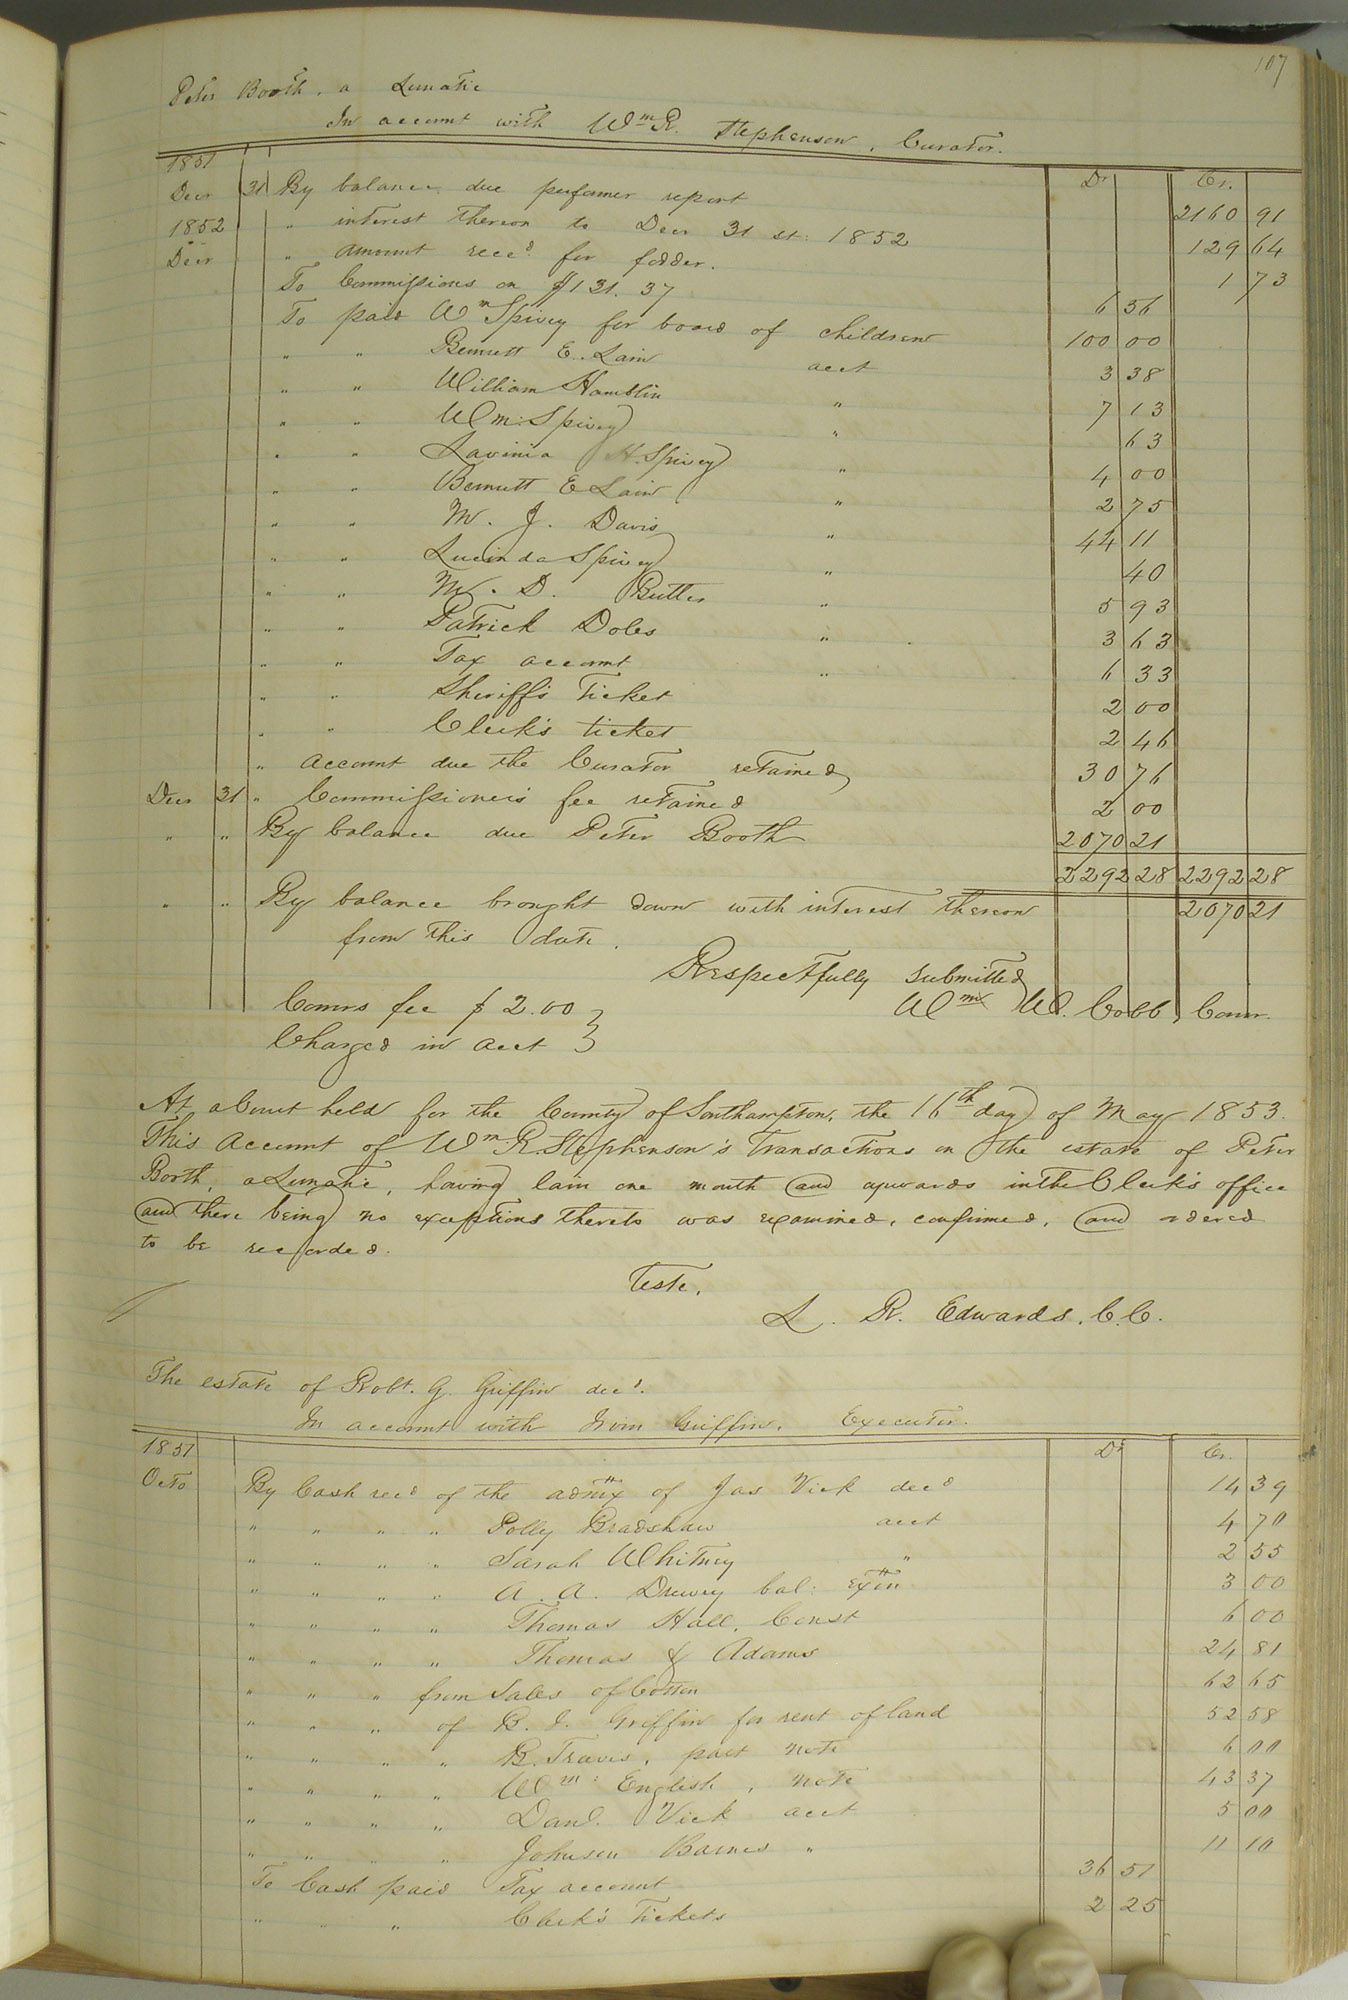 107
Peter Booth, a Lunatic
In account with Wm R. Stephenson, Curator.
1851 Dr Cr.
Decr 31 By balance due per former report 2160 91
1852 " interest thereon to Decr 31 st: 1852 129 64
Decr " amount recd for fodder. 1 73
To Commissions on $131.37 6 56
To paid Wm Spivey for board of children 100 00
" " Bennett E. Lain acct 3 38
" " William Hamblin " 7 13
" " Wm: Spivey " 63
" " Lavinia H. Spivey " 4 00
" " Bennett E Lain " 2 75
" " M. J. Davis " 44 11
" " Lucinda Spivey " 40
" " M. D. Butler " 5 93
" " Patrick Doles " 3 63
" " Tax account " 6 33
" " Sheriff's Ticket 2 00
" " Clerk's ticket 2 46
" account due the Curator retained 30 76
Decr 31 " Commissioner's fee retained 2 00
" " By balance due Peter Booth 2070 21
2292 28 2292 28
" " By balance brought down with interest thereon 2070 21
from this date.
Respectfully submitted
Wm W. Cobb, Comr.
Comrs fee $2.00 }
Charged in acct }
At a Court held for the County of Southampton, the 16th day of May 1853.
This Account of Wm R Stephenson's Transactions on the estate of Peter
Booth, a Lunatic, having lain one month and upwards in the Clerk's office
and there being no exceptions thereto was examined, confirmed, and ordered
to be recorded.
Teste,
L. R. Edwards, C.C.
The estate of Robt. G. Griffin decd.
In account with Irvin Griffin, Executor.
1851 Dr Cr.
Octo By Cash recd of the admx of Jas Vick decd 14 39
" " " " Polly Bradshaw acct 4 70
" " " " Sarah Whitney " 2 55
" " " " A. A. Drewry bal: extn 3 00
" " " " Thomas Hall, Const 6 00
" " " " Thomas & Adams 24 81
" " " from Sales of Cotton 62 65
" " " of B. J. Griffin for rent of land 52 58
" " " " B. Travis, part note 6 00
" " " " Wm: English, note 43 37
" " " " Danl. Vick acct 5 00
" " " " Johnson Barnes " 11 10
To Cash paid Tax account 36 51
" " " Clerk's Tickets 2 25